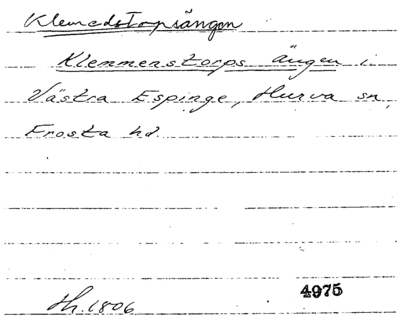 Klemedstorpsängen
Klemmenstorps ängen i
Västra Espinge, Hurva sn,
Frosta hd.
4975
Th. 1806